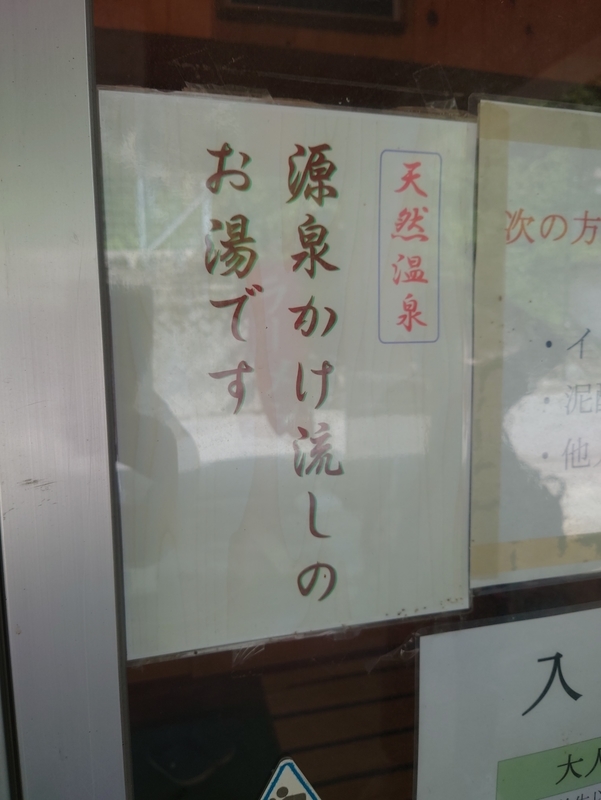 天然温泉
源泉かけ流しの
お湯です
次の方
・イ
・泥
・他
入
大人